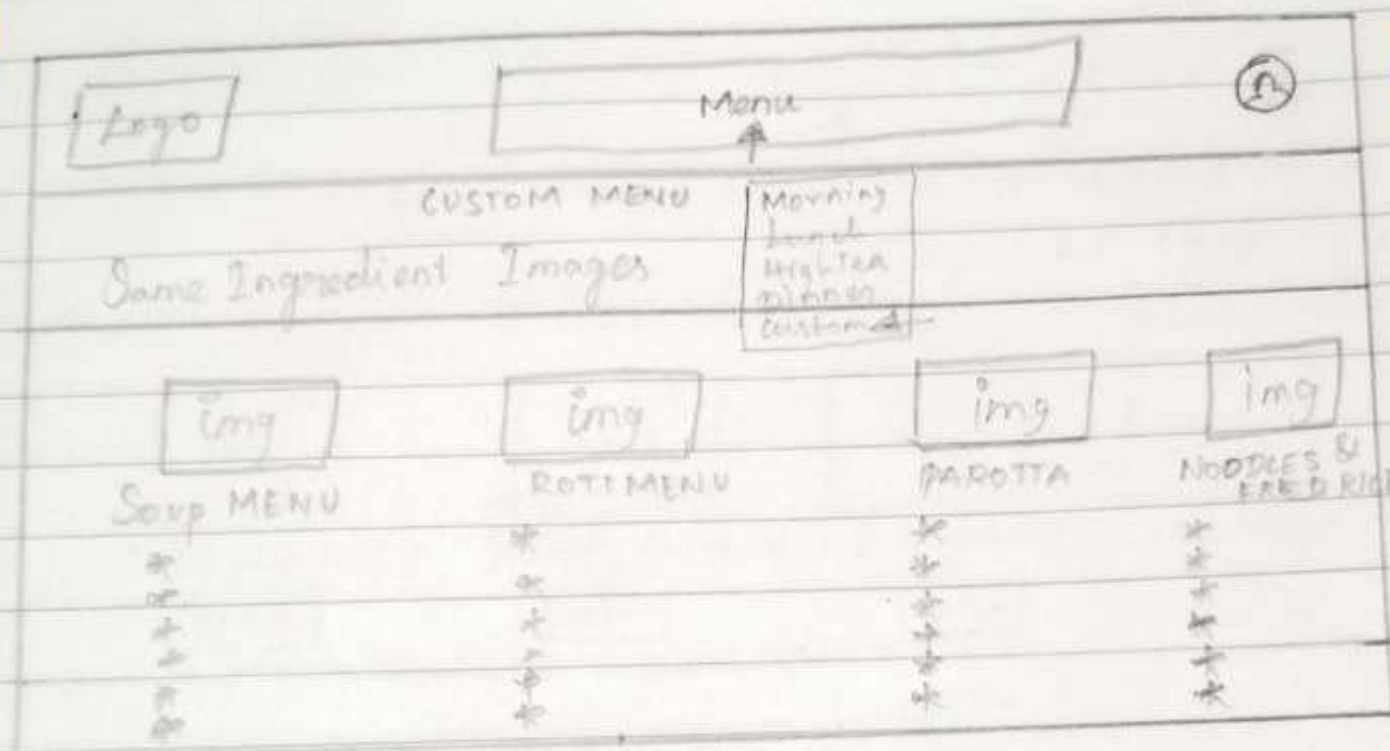 Logo
Menu
CUSTOM MENU
Morning
Lunch
High Tea
Dinner
Custom
Some Ingredient Images
img
img
img
img
Soup MENU
ROTI MENU
PAROTTA
NOODLES &
FRIED RIC